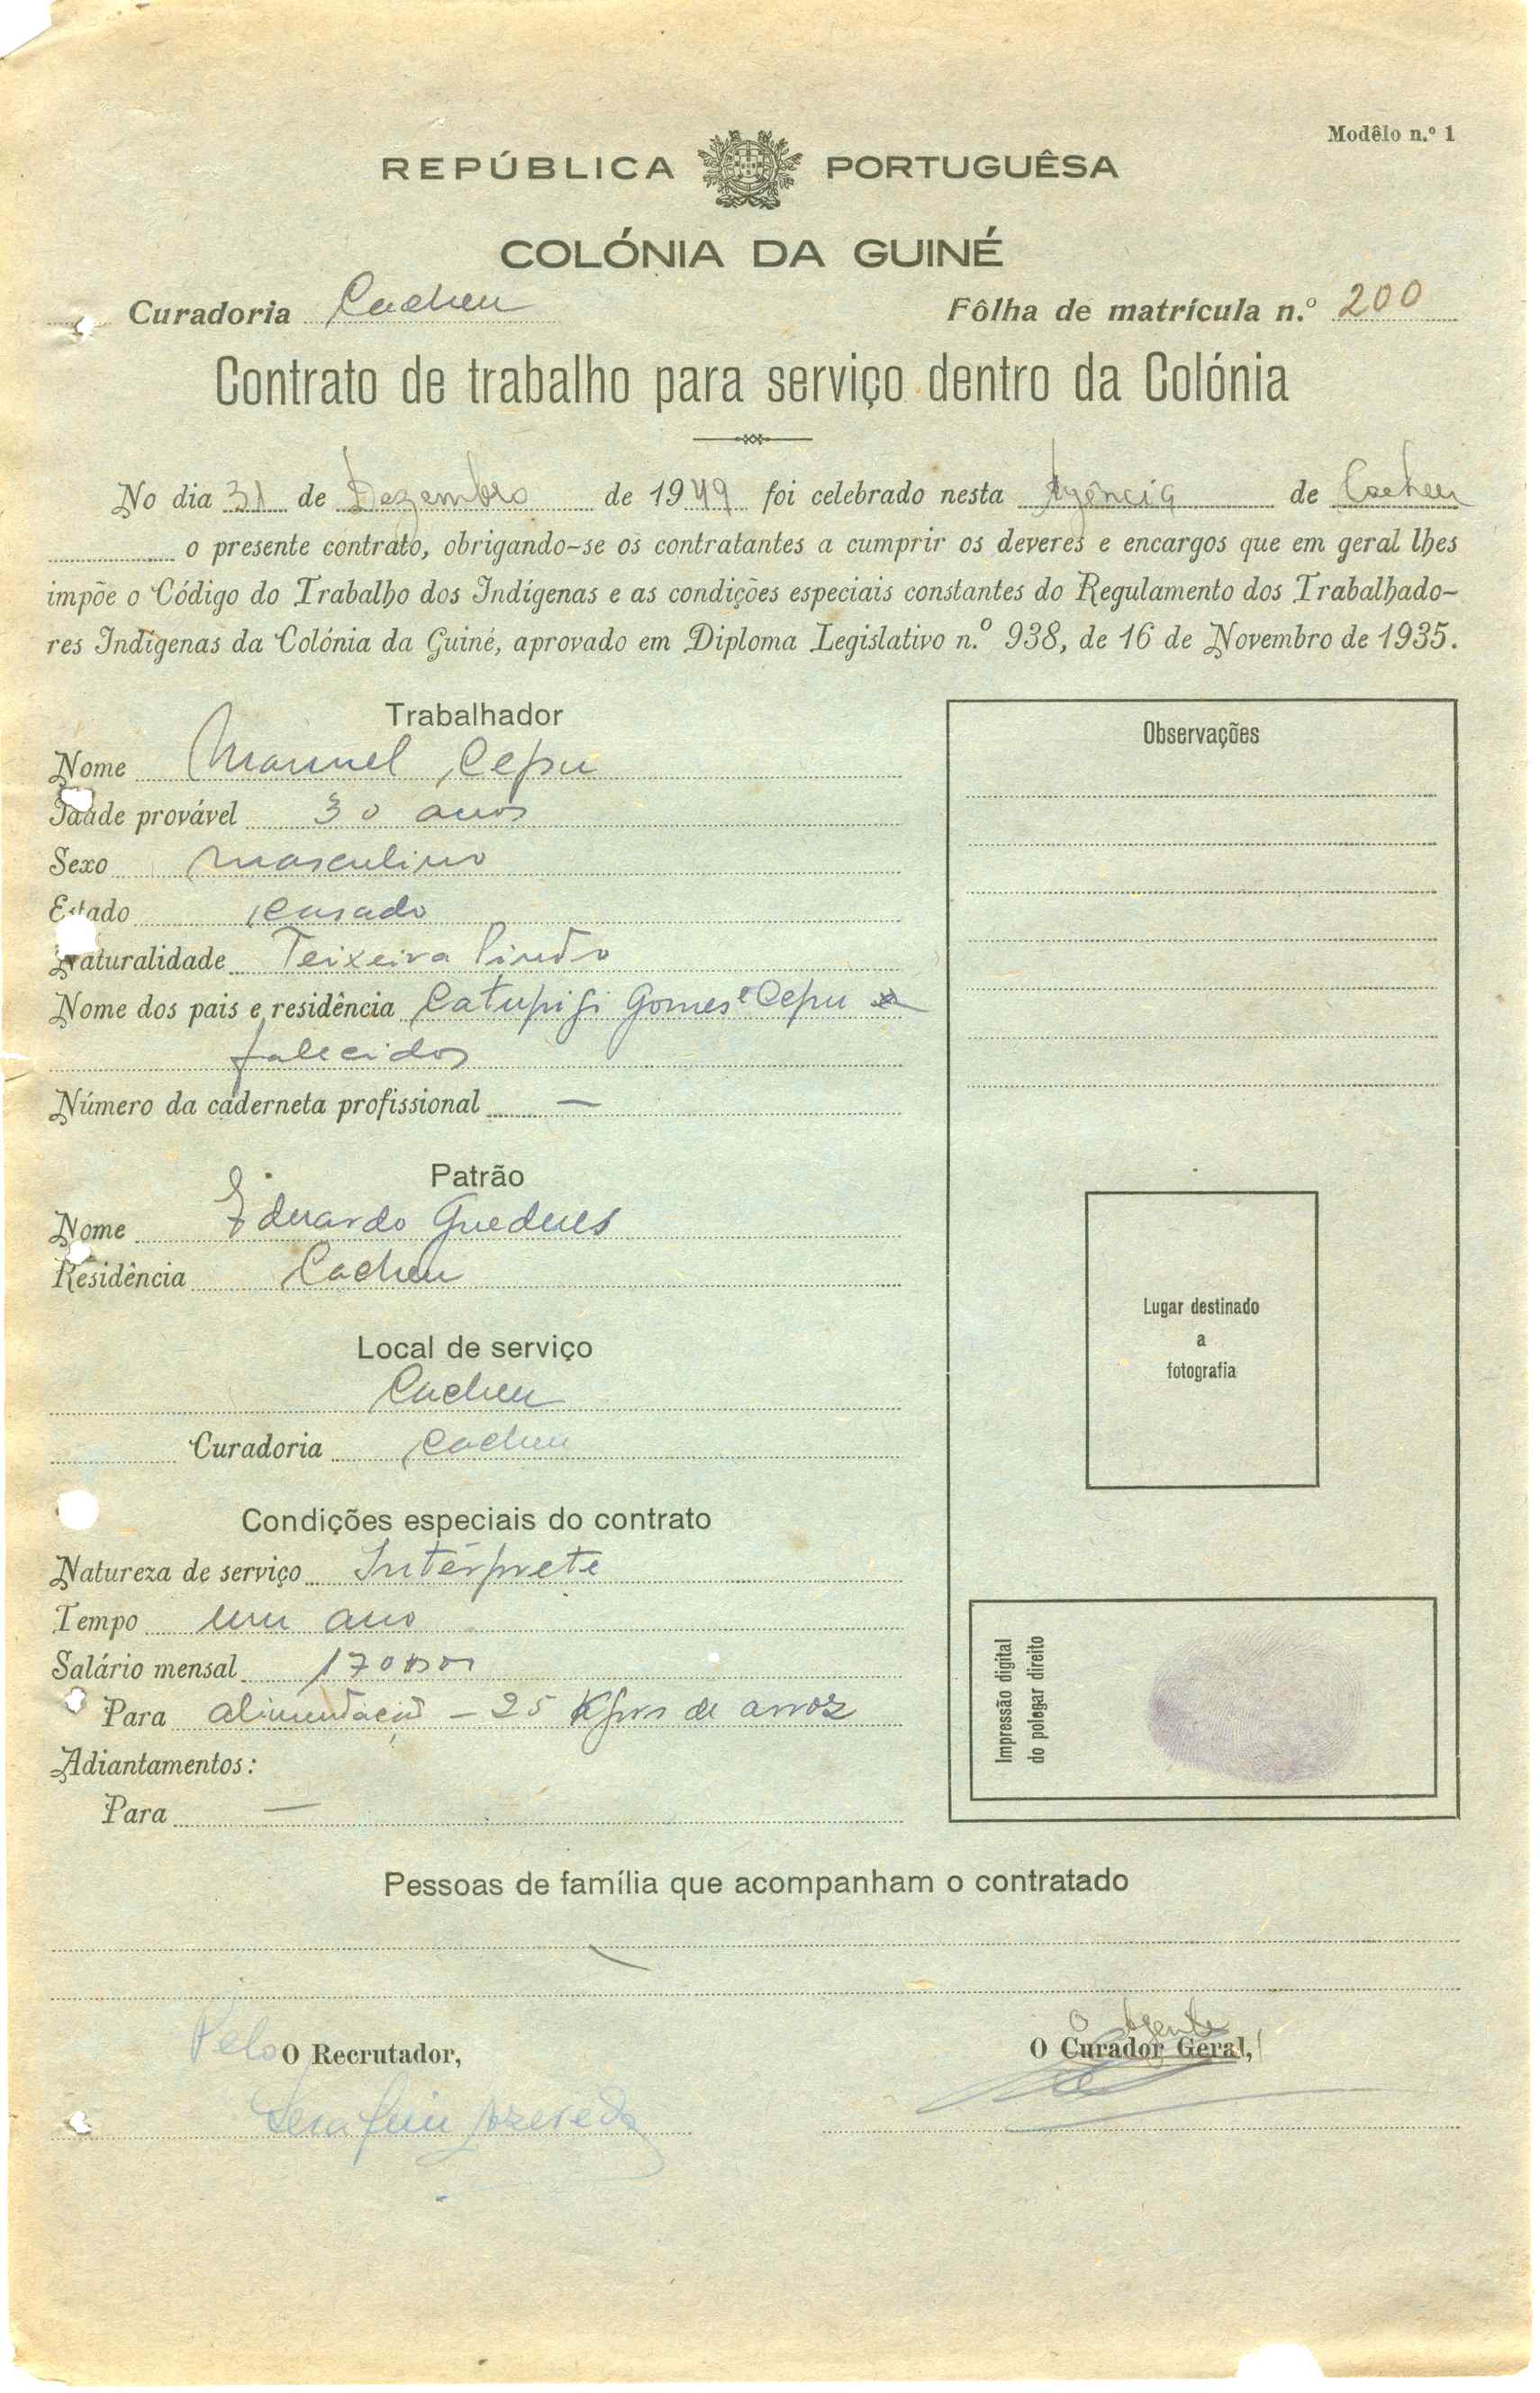 Modêlo n.º 1
REPÚBLICA PORTUGUÊSA
COLÓNIA DA GUINÉ
Curadoria Cacheu Fôlha de matrícula n.º 200
Contrato de trabalho para serviço dentro da Colónia
No dia 31 de Dezembro de 1949 foi celebrado nesta Agência de Cacheu
o presente contrato, obrigando-se os contratantes a cumprir os deveres e encargos que em geral lhes
impõe o Código do Trabalho dos Indígenas e as condições especiais constantes do Regulamento dos Trabalhado-
res Indígenas da Colónia da Guiné, aprovado em Diploma Legislativo n.º 938, de 16 de Novembro de 1935.
Trabalhador
Nome Manuel Cepu
Idade provável 30 anos
Sexo masculino
Estado casado
Naturalidade Teixeira Pinto
Nome dos pais e residência Catupigi Gomes e Cepu
falecidos
Número da caderneta profissional —
Patrão
Nome Eduardo Guedues
Residência Cacheu
Local de serviço
Cacheu
Curadoria Cacheu
Condições especiais do contrato
Natureza de serviço Intérprete
Tempo um ano
Salário mensal 170
Para alimentação – 25 Kgrs de arroz
Adiantamentos:
Para —
Observações
Lugar destinado
a
fotografia
Impressão digital
do polegar direito
Pessoas de família que acompanham o contratado
Pelo O Recrutador,
Serafim Azevedo
O Agente
O Curador Geral,